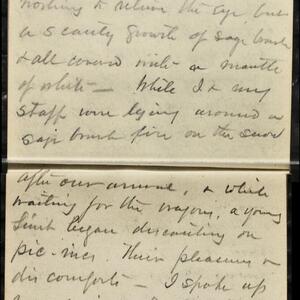 nothing to relieve the eye, but
a scanty growth of sage brush
& all covered with a mantle
of white – While I & my
staff were lying around a
sage brush fire on the
after our arrival, & while
waiting for the wagons, a young
Lieut began discanting on
pic-nics their pleasures &
discomforts – I spoke up